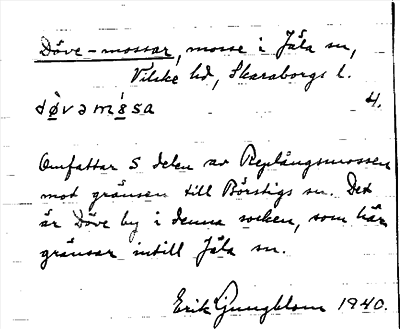 Döve-mossar, mosse i Jäla sn,
Vilske hd, Skaraborgs l.
dø̀vəmɞ̀sa 4.
Omfattar S delen av Replångsmossen
mot gränsen till Börstigs sn. Det
är Döve by i denna socken, som här
gränsar intill Jäla sn.
Erik Ljungblom 1940.